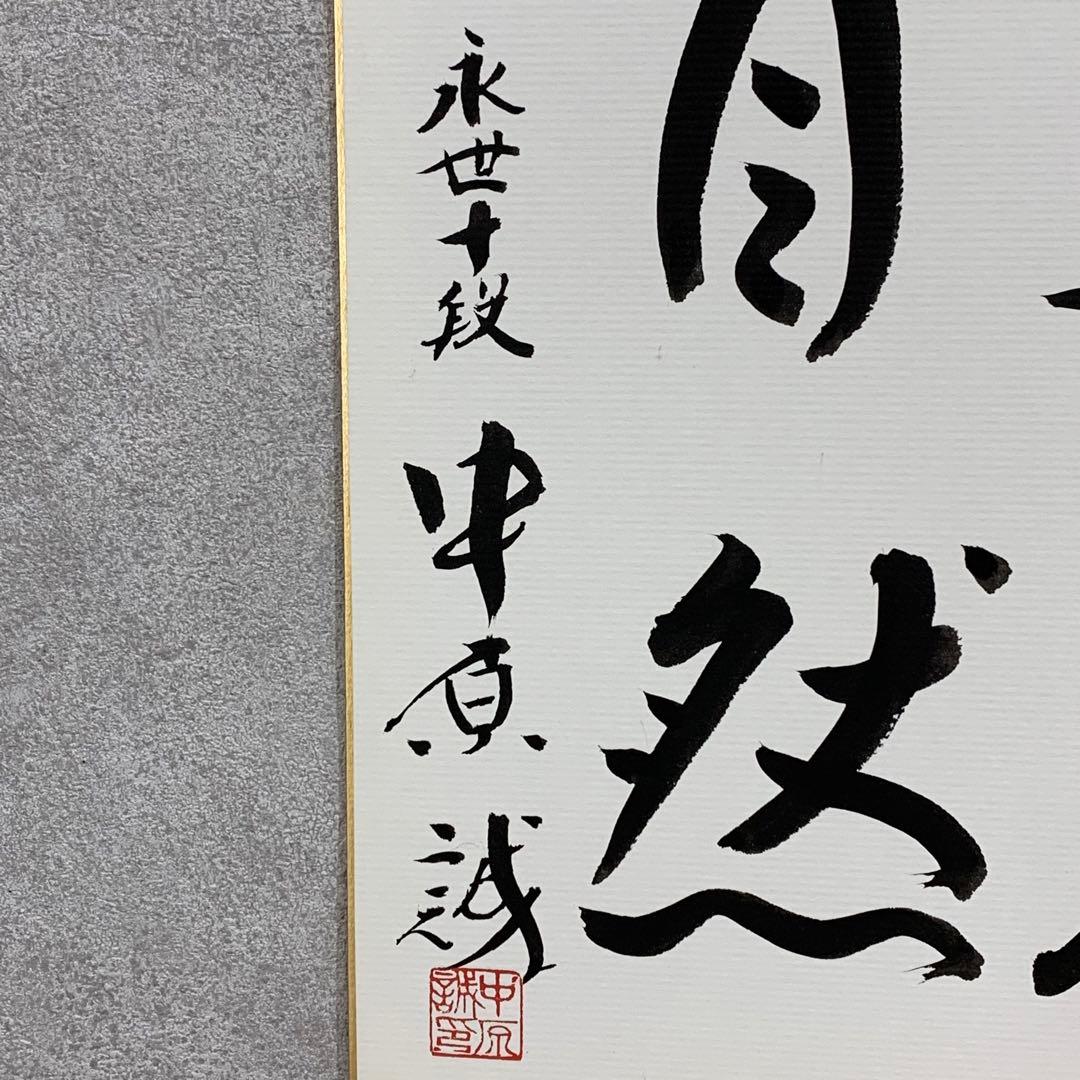 自然
永世十段
中原誠
中原
誠印